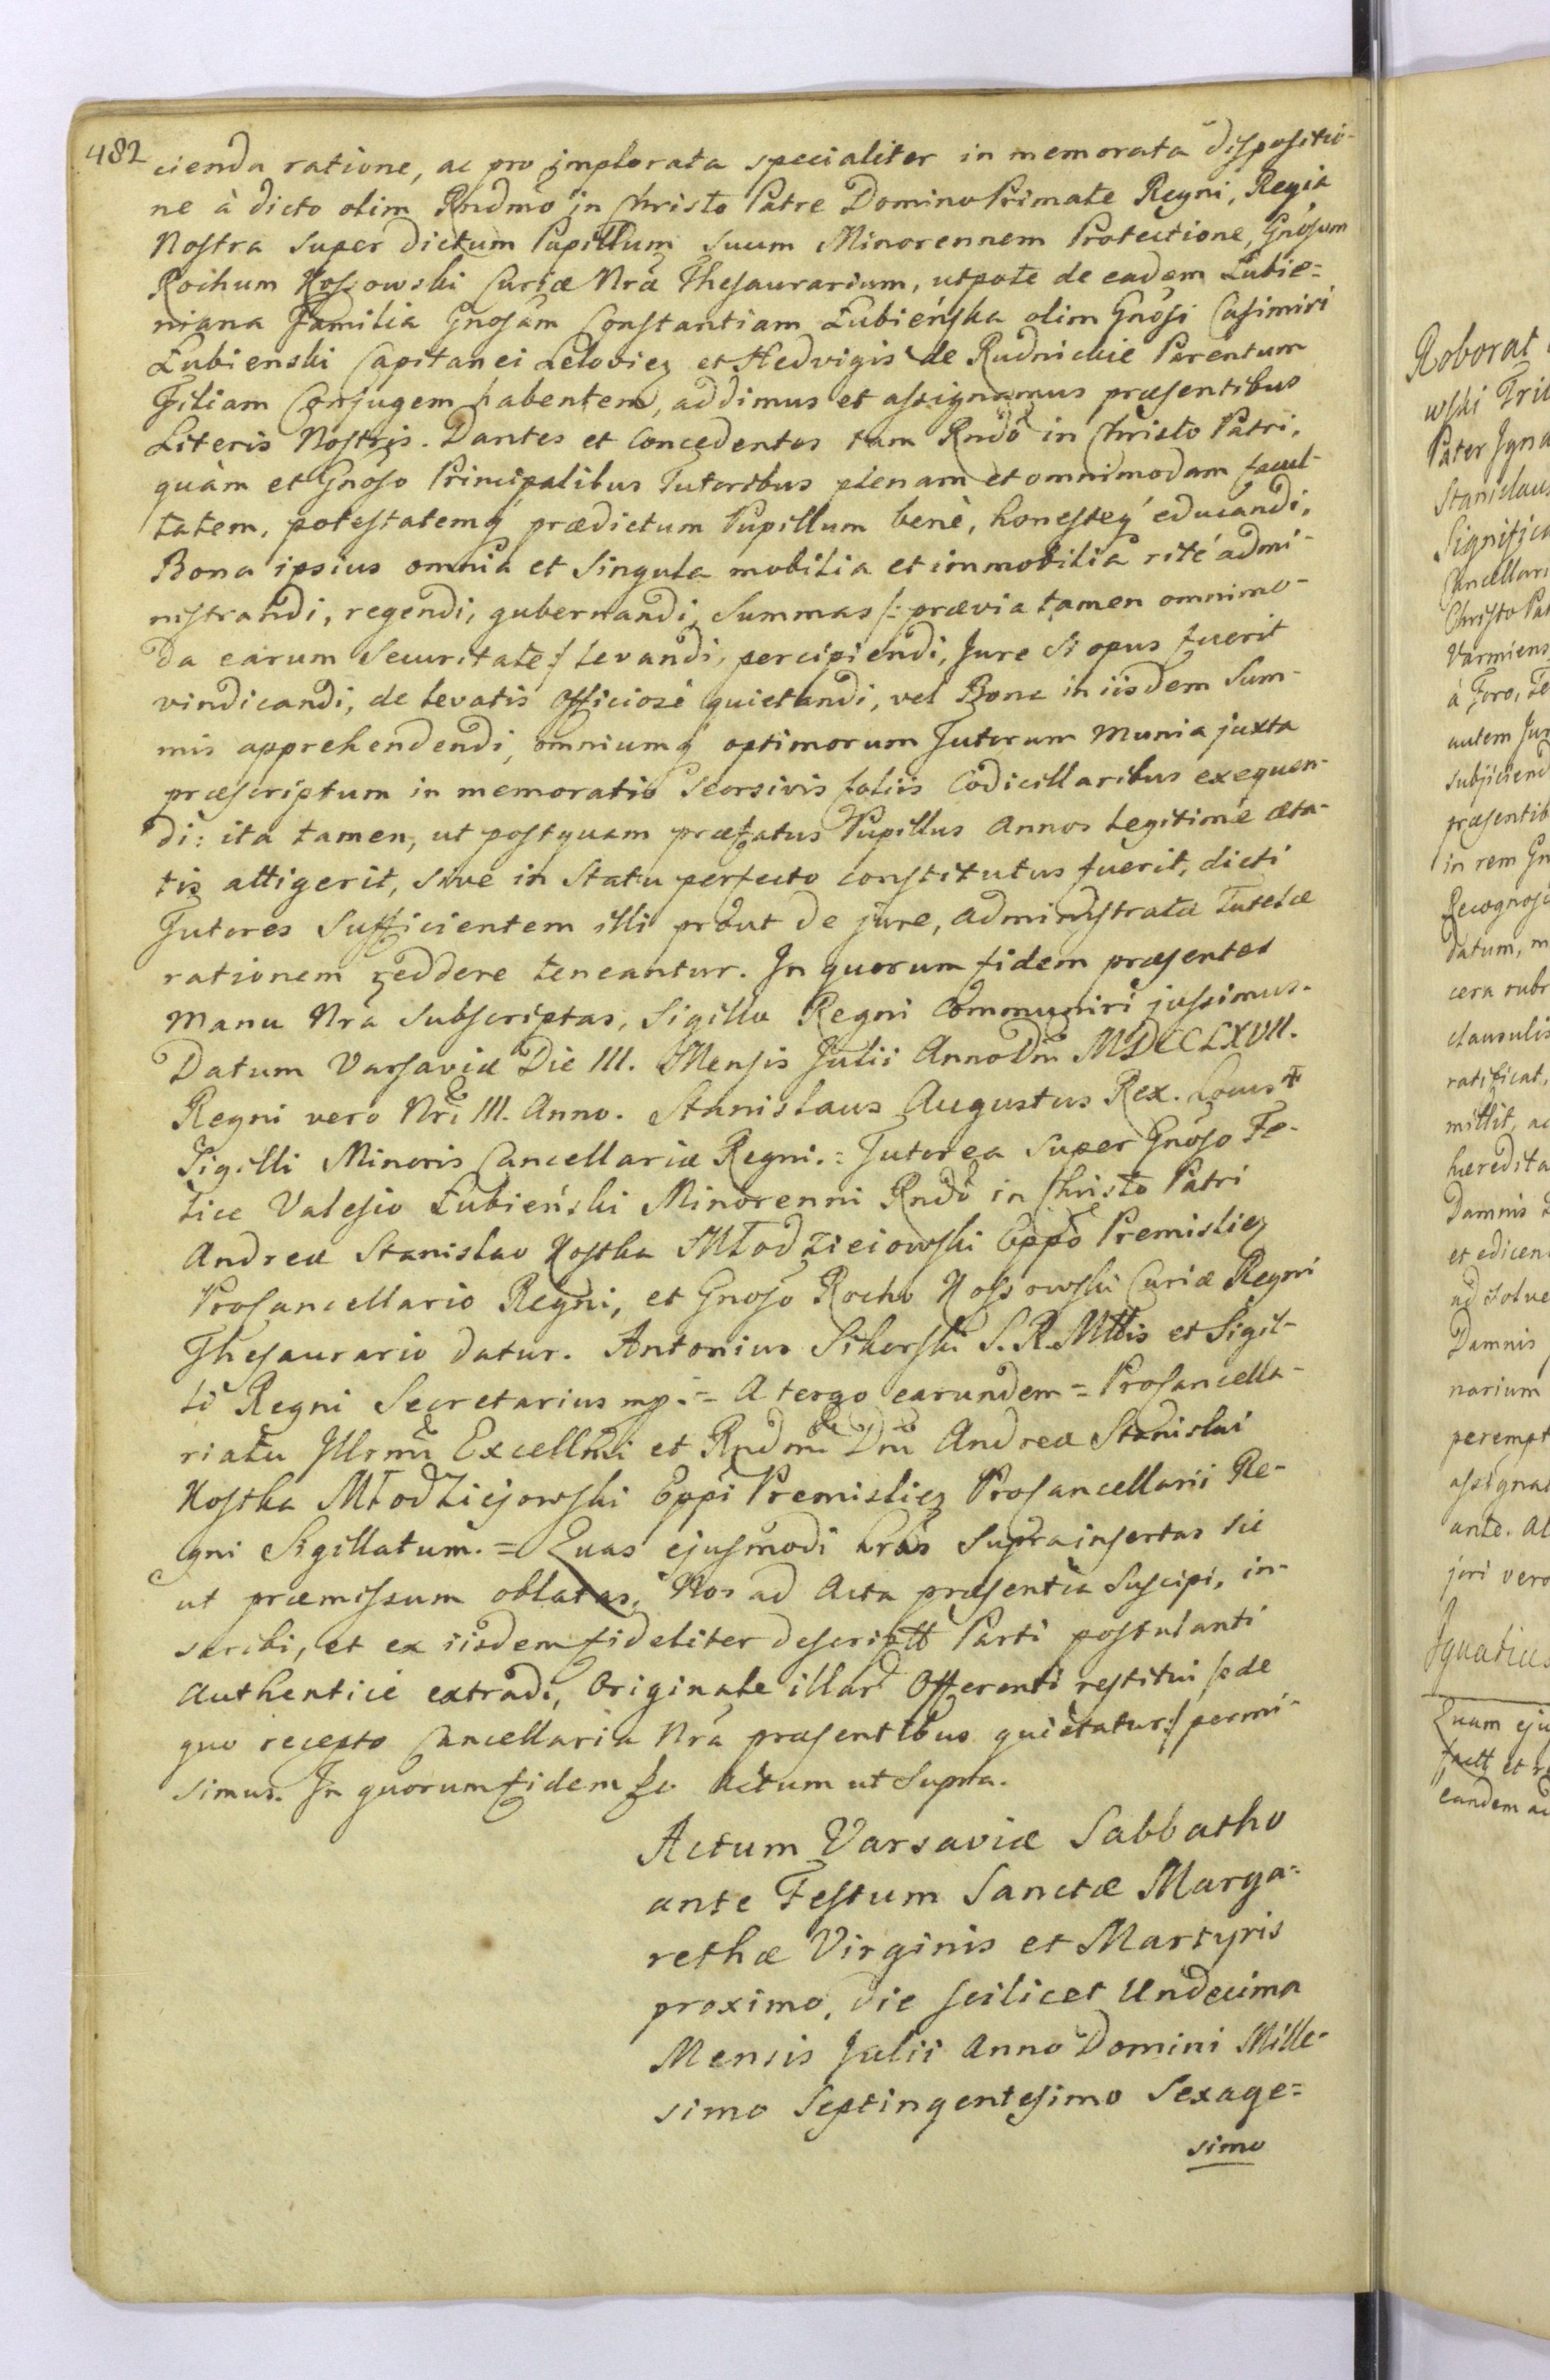 482
cienda ratione, ac pro implorata specialiter in memorata dispositio-
ne à dicto olim Rndmo in Christo Patre Domino Primate Regni, Regia
Nostra super dictum Pupillum suum Minorennem Protectione, Gnosum
Rochum Kossowski Curiæ Nræ Thesaurarium, utpote de eadem Łubie=
niana Familia Gnosam Constantiam Łubieńska olim Gnosi Casimiri
Łubienski Capitanei Leloviez et Hedvigis de Rudnickie Parentum
Filiam Conjugem habentem, addimus et assignamus præsentibus
Literis Nostris. Dantes et Concedentes tam Rndo in Christo Patri,
quàm et Gnoso Principalibus Tutoribus plenam et omnimodam facul-
tatem, potestatemq́ prædictum Pupillum benè, honesteq́ educandi,
Bona ipsius omnia et singula mobilia et immobilia rité admi-
nistrandi, regendi, gubernandi, Summas /: prævia tamen omnimo-
da earum Securitate :/ levandi, percipiendi, Jure si opus fuerit
vindicandi, de levatis officiosè quietandi, vel Bona in iisdem Sum-
mis apprehendendi, omniumq́ optimorum Tutorum munia juxta
præscriptum in memoratis Seorsivis foliis Codicillaribus exequen-
di: ita tamen, ut postquam præfatus Pupillus Annos legitimè æta-
tis attigerit, sive in Statu perfecto constitutus fuerit, dicti
Tutores sufficientem illi prout de jure, administratæ Tutelæ
rationem reddere teneantur. In quorum fidem præsentes
manu Nrâ subscriptas, Sigillo Regni Communiri jussimus.
Datum Varsaviæ Die III. Mensis Julii Anno Dni MDCCLXVII.
Regni vero Nri III. Anno. Stanislaus Augustus Rex. Locus +
Sigilli Minoris Cancellariæ Regni. = Tutorea super Gnoso Fe-
lice Valesio Łubieński Minorenni Rndo in Christo Patri
Andreæ Stanislao Kostka Młodzieiowski Eppo Premisliez
Procancellario Regni, et Gnoso Rocho Kossowski Curiæ Regni
Thesaurario datur. Antonius Sikorski S. R. Mttis et Sigil-
li Regni Secretarius mp. = A tergo earundem = Procancella-
riatu Illrmi Excellmi et Rndmi Dni Andreæ Stanislai
Kostka Młodziejowski Eppi Premisliez Procancellarii Re-
gni Sigillatum. = Quas ejusmodi Lras suprainsertas sic
ut præmissum oblatas, Nos ad Acta præsentia suscipi, in-
scribi, et ex iisdem fideliter descriptt Parti postulanti
Authentice extradi, Originale illar Offerenti restitui /: de
quo recepto Cancellaria Nra præsentibus quietatur :/ permi-
simus. In quorum fidem &c Actum ut Supra.
Actum Varsaviæ Sabbatho
ante Festum Sanctæ Marga=
rethæ Virginis et Martyris
proximo, die scilicet Undecima
Mensis Julii Anno Domini Mille-
simo Septingentesimo Sexage=
simo
Roborat
wski Tri
Pater Igna
Stanislaus
Significa
Cancellari
Christo Pat
Varmiens
à Foro, Te
autem Jur
subjiciend
præsentib
in rem Gn
Recognosc
datum, m
cera rubr
clausulis
ratificat,
mittit, ac
hæredita
Damnis
et edicen
ad solve
Damnis
narium
perempt
assignat
ante. Al
juri vero
Ignatius
Quam eju
factt et
eandem ad